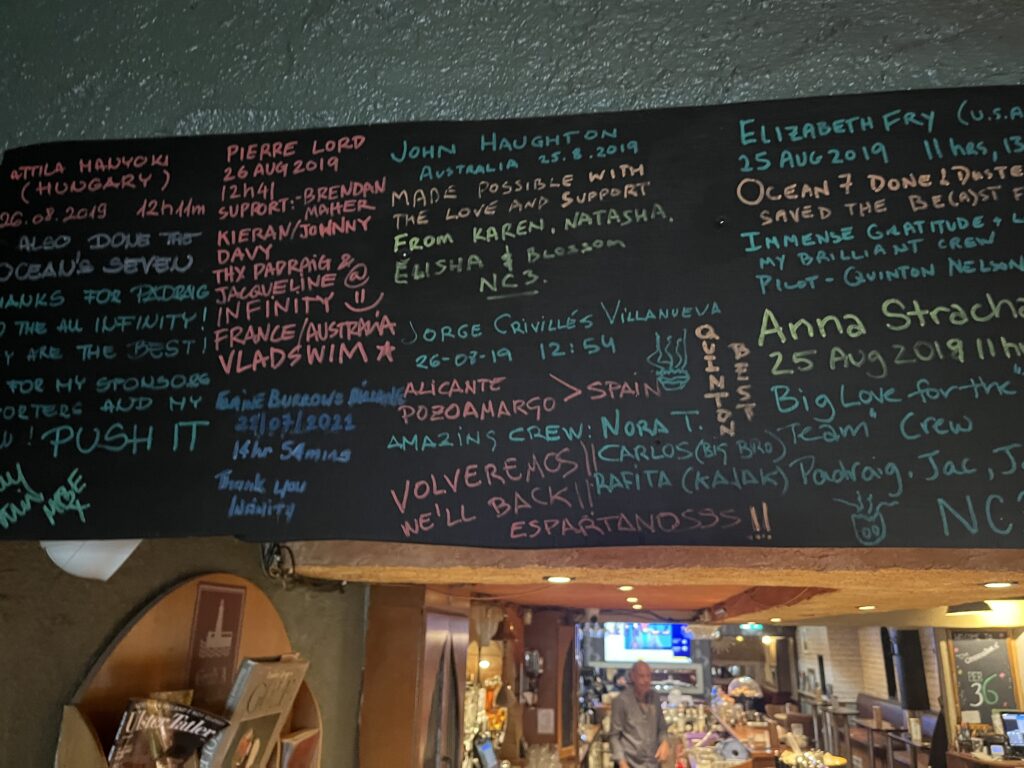 ATTILA MANYOKI
(HUNGARY)
26.08.2019 12h11m
ALSO DONE THE
OCEAN'S SEVEN
THANKS FOR PADRAIG
THE ALL INFINITY!
ARE THE BEST!
FOR MY SPONSORS
AND MY
PUSH IT
MBE
PIERRE LORD
26 AUG 2019
12h41
SUPPORT:-BRENDAN
MAHER
KIERAN/JOHNNY
DAVY
THX PADRAIG &
JACQUELINE @
INFINITY
FRANCE/AUSTRALIA
VLADSWIM
BURROWS
21/07/2021
14hr 54mins
Thank you
Infinity
JOHN HAUGHTON
AUSTRALIA 25.8.2019
MADE POSSIBLE WITH
THE LOVE AND SUPPORT
FROM KAREN, NATASHA,
ELISHA & BLOSSOM
NC3.
JORGE CRIVILLÉS VILLANUEVA
26-08-19 12:54
ALICANTE
POZOAMARGO > SPAIN
AMAZING CREW: NORA T.
CARLOS (BIG BRO)
RAFITA (KAJAK)
VOLVEREMOS!!
WE'LL BACK!!
ESPARTANOSSS!!
QUINTON
BEST
ELIZABETH FRY (U.S.A
25 AUG 2019 11 hrs, 13
OCEAN 7 DONE & DUSTE
SAVED THE BE(A)ST F
IMMENSE GRATITUDE & L
MY BRILLIANT CREW
PILOT - QUINTON NELSON
Anna Stracha
25 Aug 2019 11h
Big Love for the "
Team" Crew
Padraig, Jac, J
NC
Ulster Tatler
WELCOME TO
PIER
36